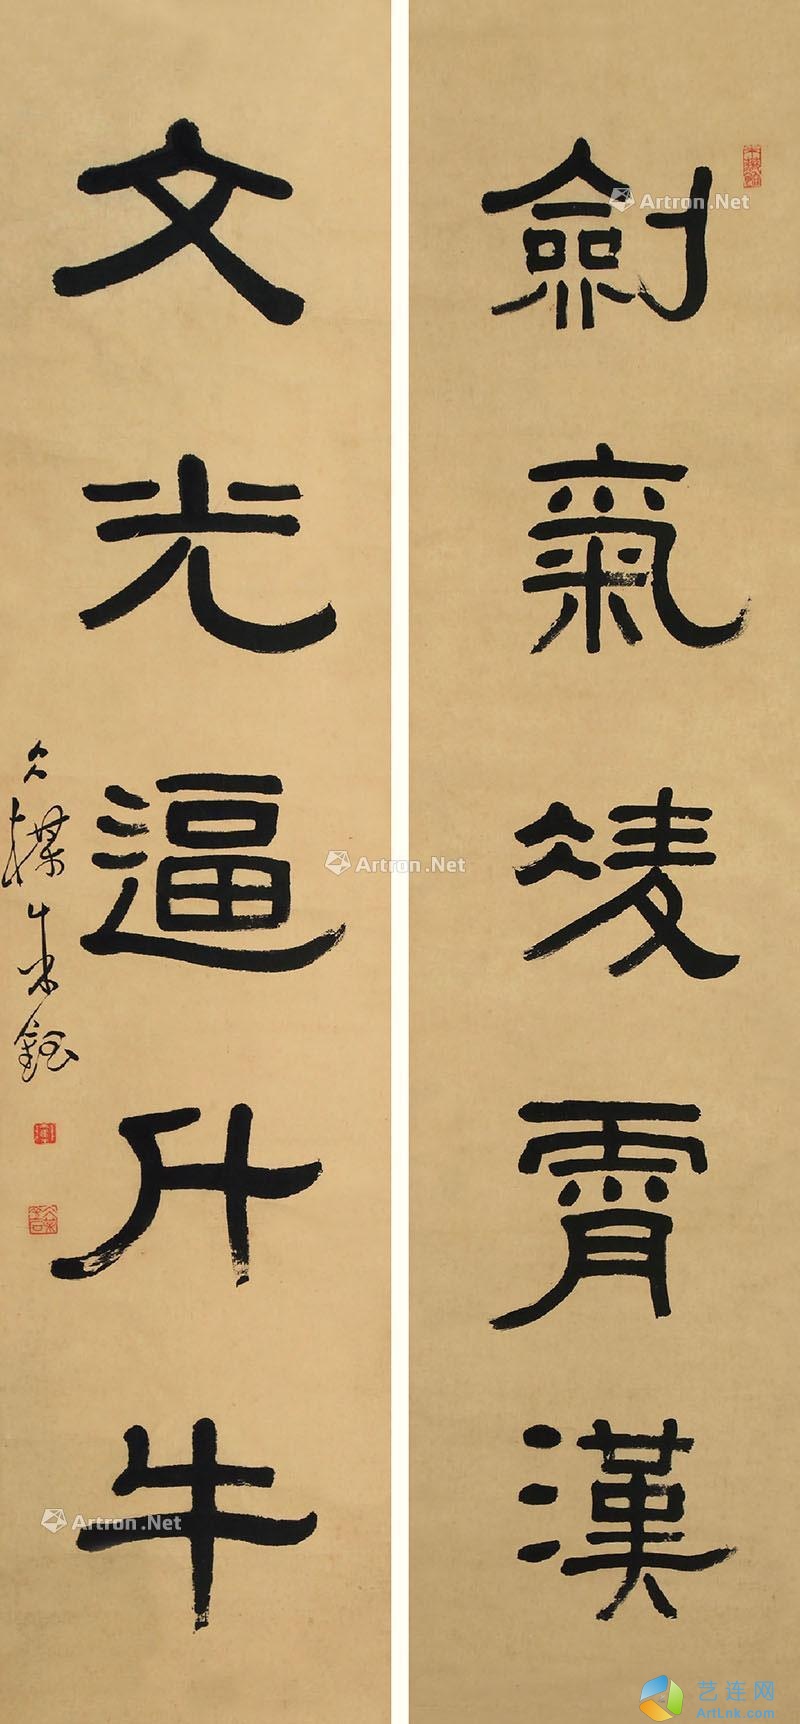 劍氣凌霄漢
文光逼斗牛
朱鈺
Artron.Net
Artron.Net
Artron.Net
艺连网
ArtLnk.com